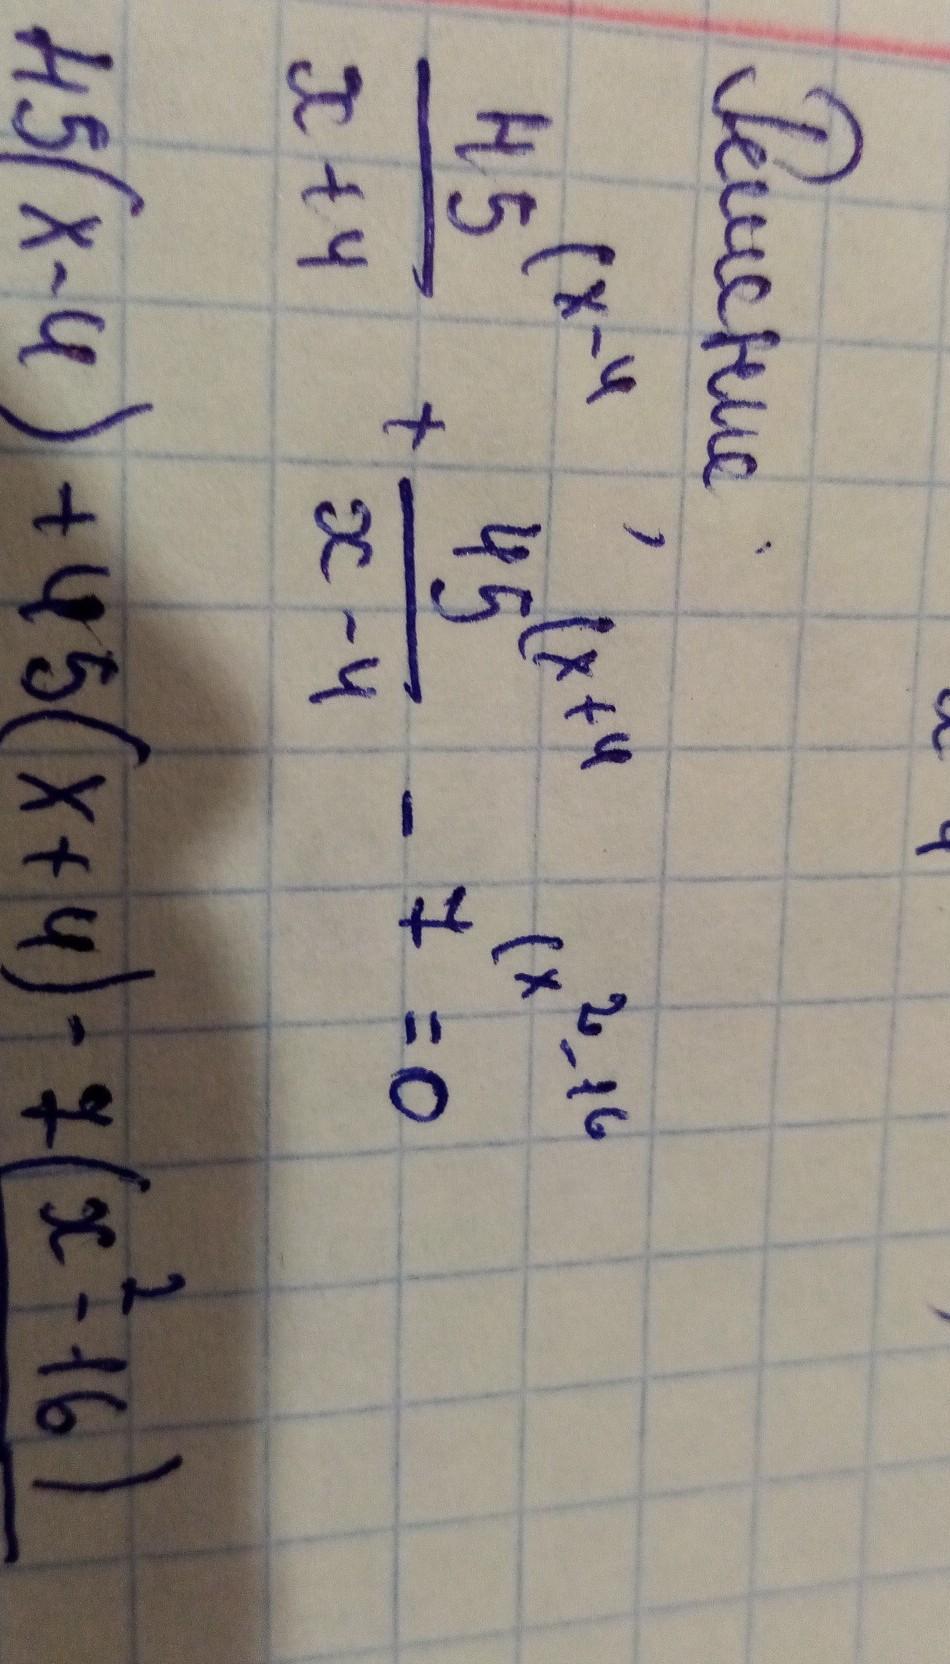 Решение
45(x-4 , 45(x+4 (x²-16
x+4 + x-4 - 7 = 0
45(x-4) + 45(x+4) - 7(x²-16)